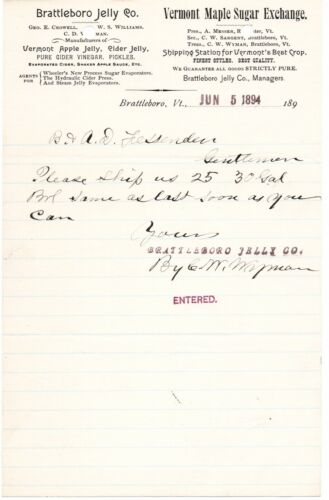 Brattleboro Jelly Co.
Geo. E. Crowell, W. S. Williams,
C. D. W MAN.
Manufacturers of
Vermont Apple Jelly, Cider Jelly,
PURE CIDER VINEGAR, PICKLES.
EVAPORATED CIDER, SHAKER APPLE SAUCE, ETC.
AGENTS FOR
Wheeler's New Process Sugar Evaporators.
The Hydraulic Cider Press.
And Steam Jelly Evaporators.
Vermont Maple Sugar Exchange.
Pres., A. Messer, R ter, Vt.
Sec., C. W. Sargent, Brattleboro, Vt.
Treas., C. W. Wyman, Brattleboro, Vt.
Shipping Station for Vermont's Best Crop.
FINEST STYLES. BEST QUALITY.
We Guarantee all goods STRICTLY PURE.
Brattleboro Jelly Co., Managers
Brattleboro, Vt., JUN 5 1894 189
B & A. D. Fessenden
Gentlemen
Please ship us 25 30 Gal
Brl same as last soon as you
can
Yours
BRATTLEBORO JELLY CO.
By C. W. Wyman
ENTERED.